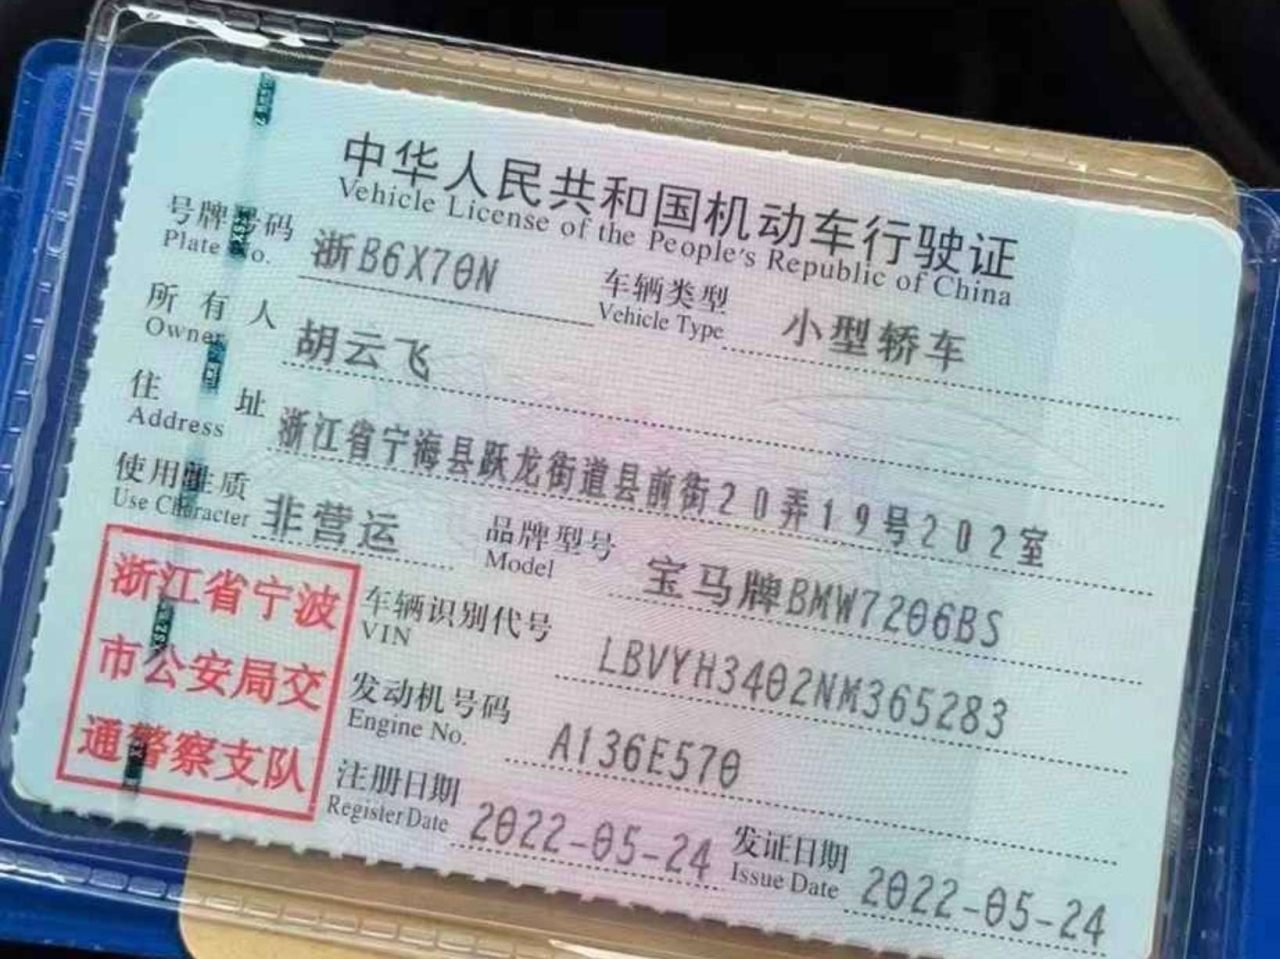 中华人民共和国机动车行驶证
Vehicle License of the People's Republic of China
号牌号码 浙B6X70N 车辆类型 小型轿车
Plate No. Vehicle Type
所有人 胡云飞
Owner
住址 浙江省宁海县跃龙街道县前街20弄19号202室
Address
使用性质 非营运 品牌型号 宝马牌BMW7206BS
Use Character Model
浙江省宁波
市公安局交
通警察支队
车辆识别代号 LBVYH3402NM365283
VIN
发动机号码 A136E570
Engine No.
注册日期 2022-05-24 发证日期 2022-05-24
Register Date Issue Date